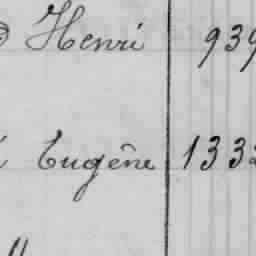 Henri 939
Eugène 1332